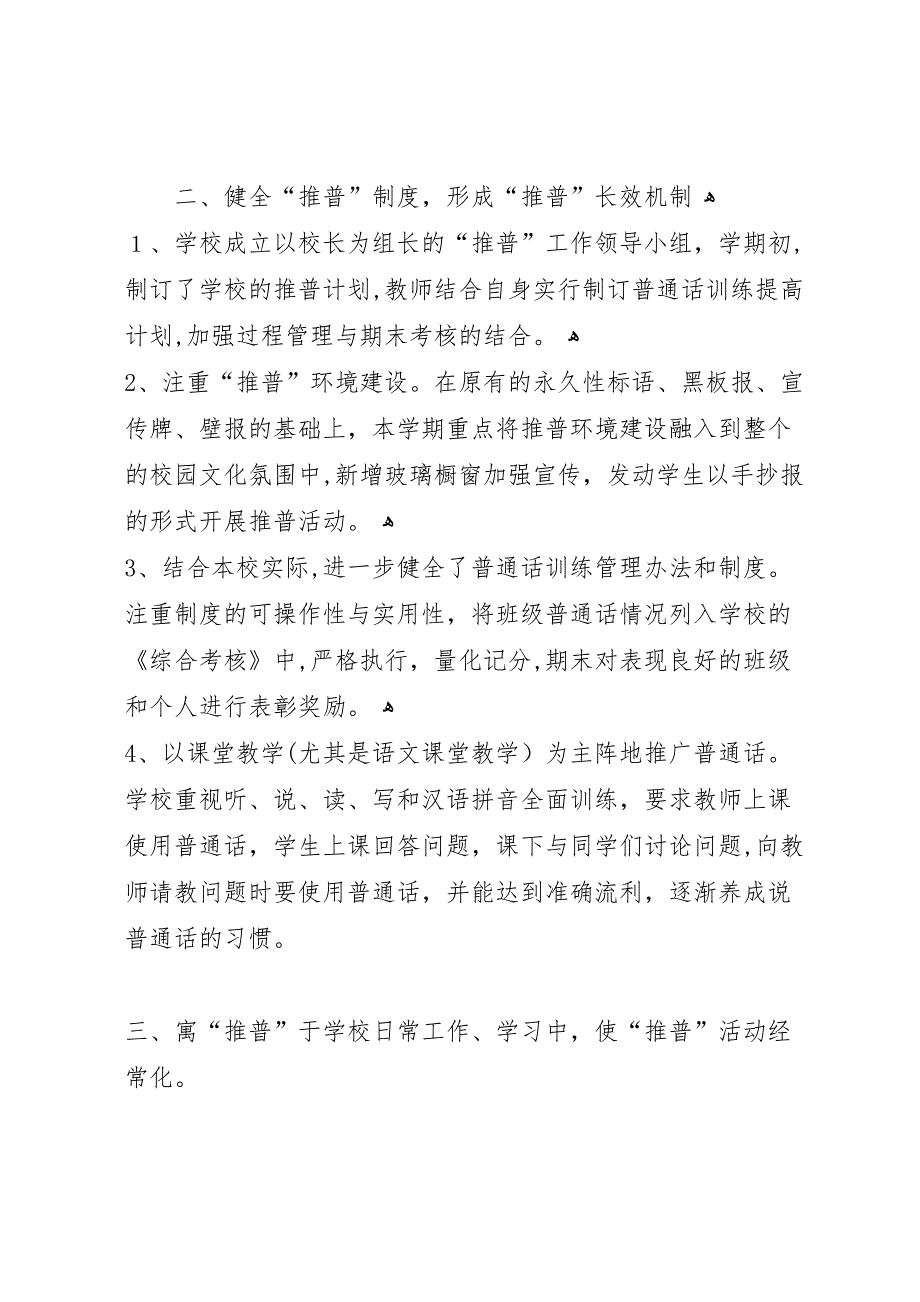 二、健全“推普”制度，形成“推普”长效机制 ﻫ
１、学校成立以校长为组长的“推普”工作领导小组，学期初,
制订了学校的推普计划,教师结合自身实行制订普通话训练提高
计划,加强过程管理与期末考核的结合。 ﻫ
2、注重“推普”环境建设。在原有的永久性标语、黑板报、宣
传牌、壁报的基础上，本学期重点将推普环境建设融入到整个
的校园文化氛围中,新增玻璃橱窗加强宣传，发动学生以手抄报
的形式开展推普活动。 ﻫ
3、结合本校实际,进一步健全了普通话训练管理办法和制度。
注重制度的可操作性与实用性，将班级普通话情况列入学校的
《综合考核》中,严格执行，量化记分,期末对表现良好的班级
和个人进行表彰奖励。 ﻫ
4、以课堂教学(尤其是语文课堂教学）为主阵地推广普通话。
学校重视听、说、读、写和汉语拼音全面训练，要求教师上课
使用普通话，学生上课回答问题，课下与同学们讨论问题,向教
师请教问题时要使用普通话，并能达到准确流利，逐渐养成说
普通话的习惯。
三、寓“推普”于学校日常工作、学习中，使“推普”活动经
常化。